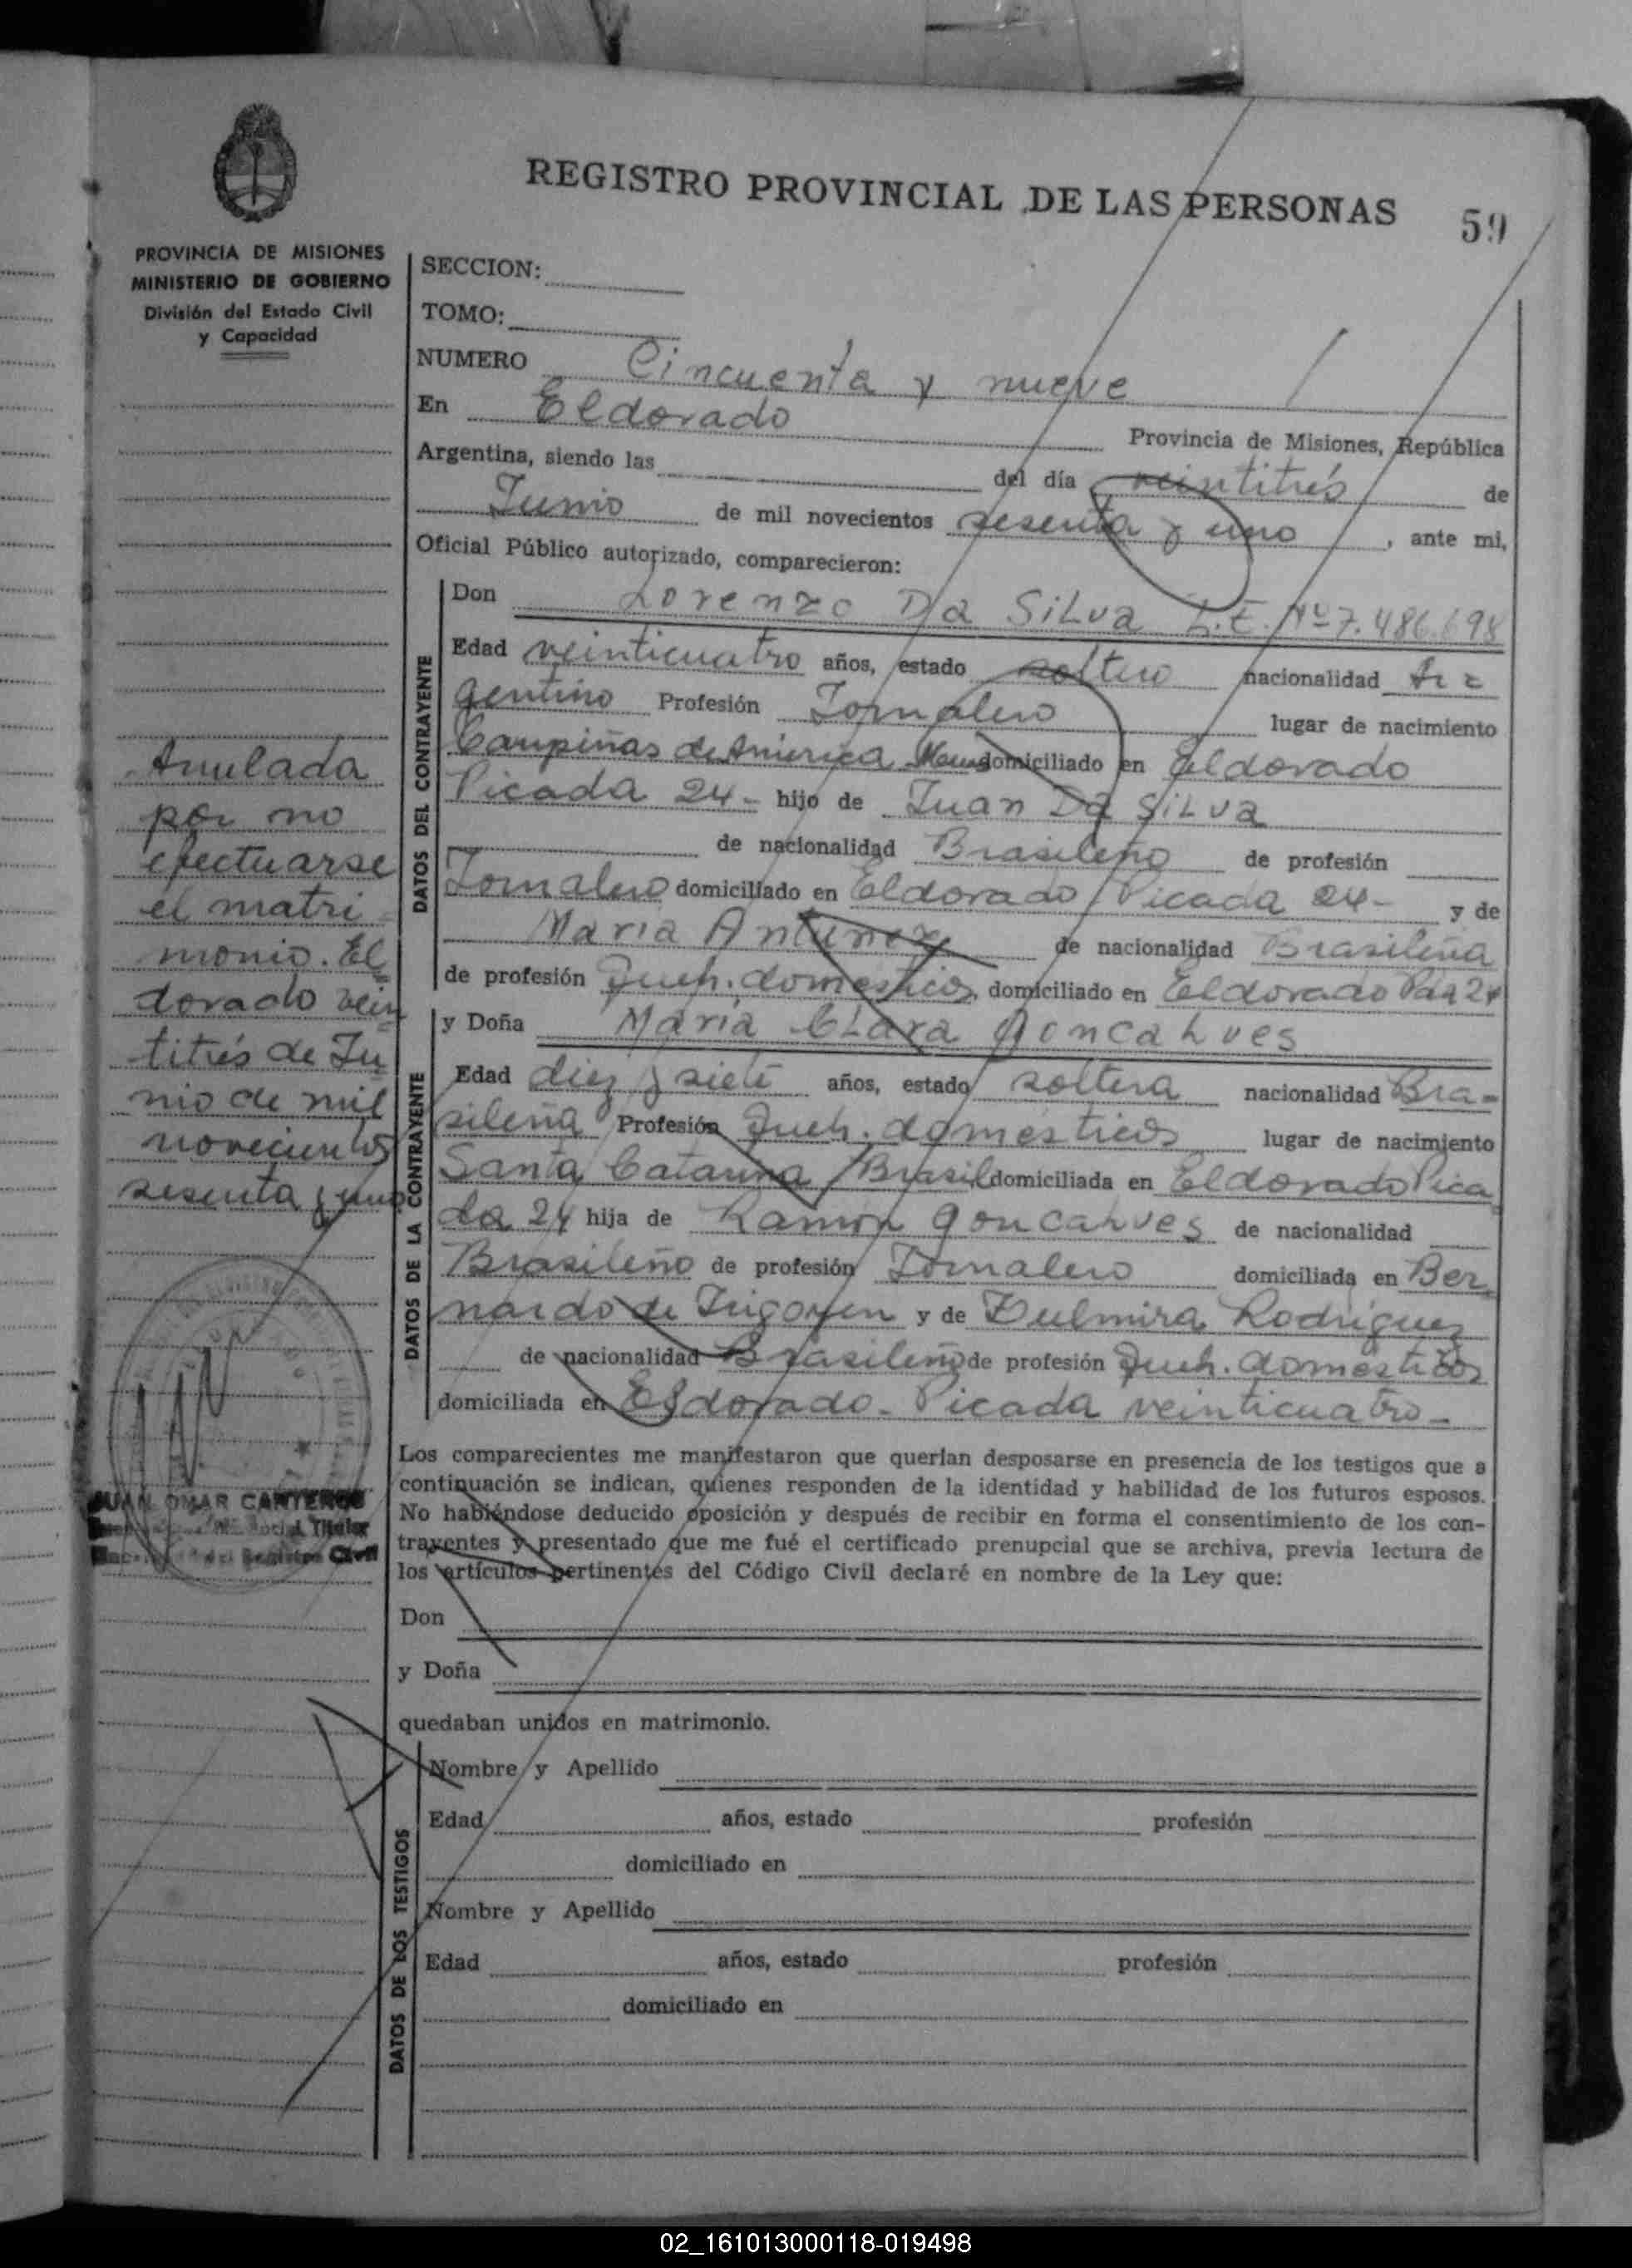 REGISTRO PROVINCIAL DE LAS PERSONAS
59
PROVINCIA DE MISIONES
MINISTERIO DE GOBIERNO
División del Estado Civil
y Capacidad
SECCION:
TOMO:
NUMERO Cincuenta y nueve
En Eldorado Provincia de Misiones, República
Argentina, siendo las del día veintitrés de
Junio de mil novecientos sesenta y uno, ante mi,
Oficial Público autorizado, comparecieron:
DATOS DEL CONTRAYENTE
Don Lorenzo Da Silva L.E. Nº 7.486.698
Edad veinticuatro años, estado soltero nacionalidad Ar=
gentino Profesión Jornalero lugar de nacimiento
Campiñas de America domiciliado en Eldorado
Picada 24- hijo de Juan Da Silva
de nacionalidad Brasileño de profesión
Jornalero domiciliado en Eldorado Picada 24- y de
Maria Antunez de nacionalidad Brasileña
de profesión Queh. domesticos, domiciliado en Eldorado Pda 24
DATOS DE LA CONTRAYENTE
y Doña Maria Clara Goncalves
Edad diez y siete años, estado soltera nacionalidad Bra=
sileña Profesión Queh. domésticos lugar de nacimiento
Santa Catarina Brasil domiciliada en Eldorado Pica
da 24 hija de Ramón Goncalves de nacionalidad
Brasileño de profesión Jornalero domiciliada en Ber
nardo de Irigoyen y de Dulmira Rodriguez
de nacionalidad Brasileño de profesión Queh. domésticos
domiciliada en Eldorado- Picada veinticuatro-
Los comparecientes me manifestaron que querían desposarse en presencia de los testigos que a
continuación se indican, quienes responden de la identidad y habilidad de los futuros esposos.
No habiéndose deducido oposición y después de recibir en forma el consentimiento de los con-
trayentes y presentado que me fué el certificado prenupcial que se archiva, previa lectura de
los artículos pertinentes del Código Civil declaré en nombre de la Ley que:
Don
y Doña
quedaban unidos en matrimonio.
DATOS DE LOS TESTIGOS
Nombre y Apellido
Edad años, estado profesión
domiciliado en
Nombre y Apellido
Edad años, estado profesión
domiciliado en
Anulada
por no
efectuarse
el matri=
monio. El
dorado vein
titrés de Ju
nio de mil
novecientos
sesenta y uno
JUAN OMAR CANTEROS
Titular
Registro Civil
02_161013000118-019498